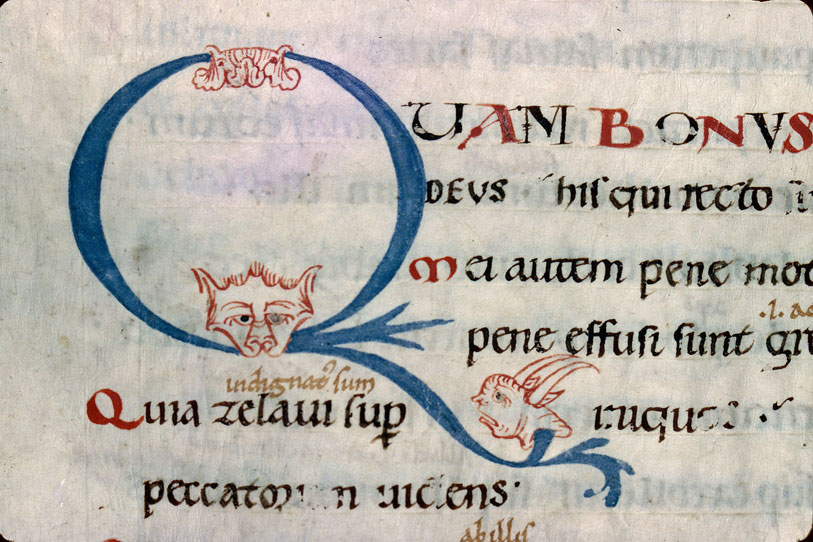 QUAM BONUS
DEUS his qui recto
Mei autem pene mot
.l. ac
pene effusi sunt gr
indignat' sum
Quia zelavi sup iniquos
peccatorum videns.
abillis